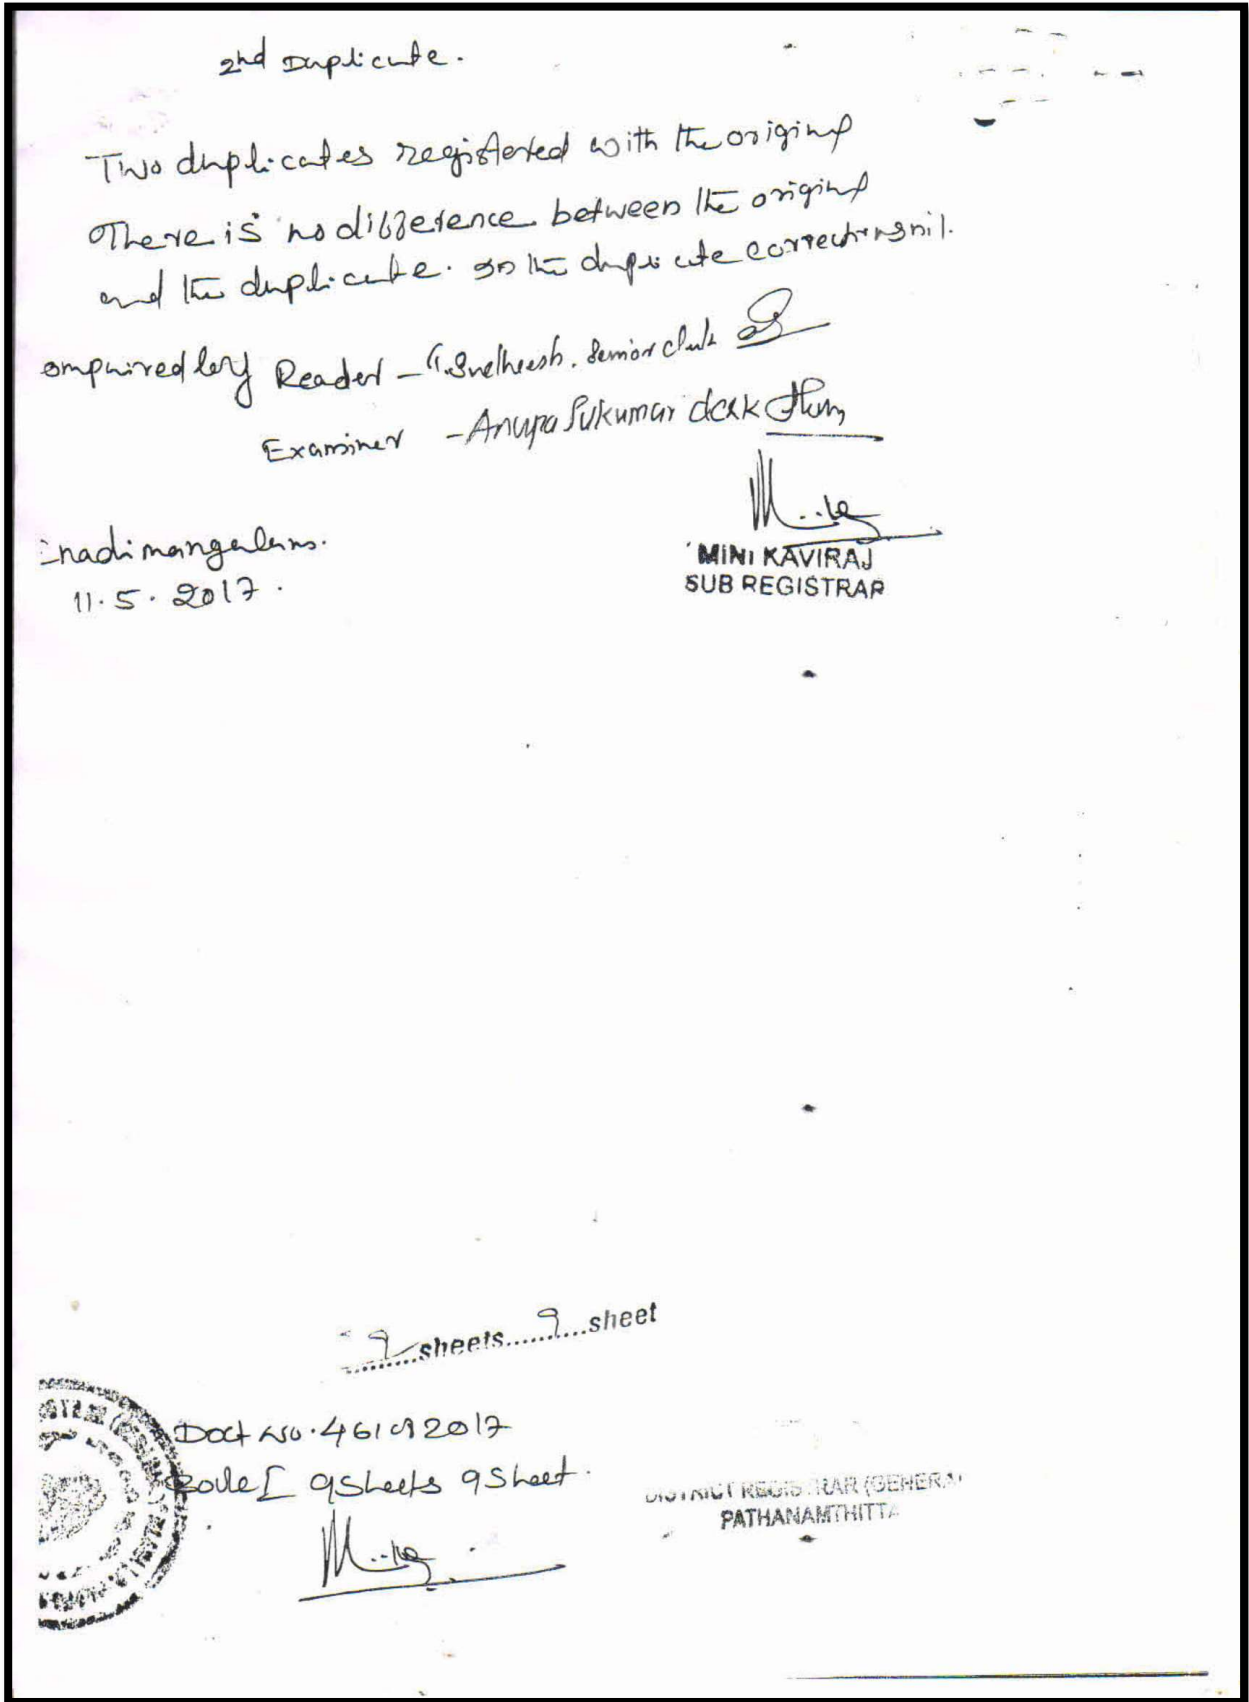 2nd Duplicate.
Two duplicates registered with the original
There is no difference between the original
and the duplicate. In the duplicate corrections nil.
ompaired by Reader - G. Snelheesh. Senior clerk
Examiner - Anupa Sukumar clerk
MINI KAVIRAJ
SUB REGISTRAR
Enadimangalam.
11.5.2017.
9 sheets 9 sheet
Doct No. 461 of 2017
Book I 9 Sheets 9 Sheet.
DISTRICT REGISTRAR (GENERAL
PATHANAMTHITTA